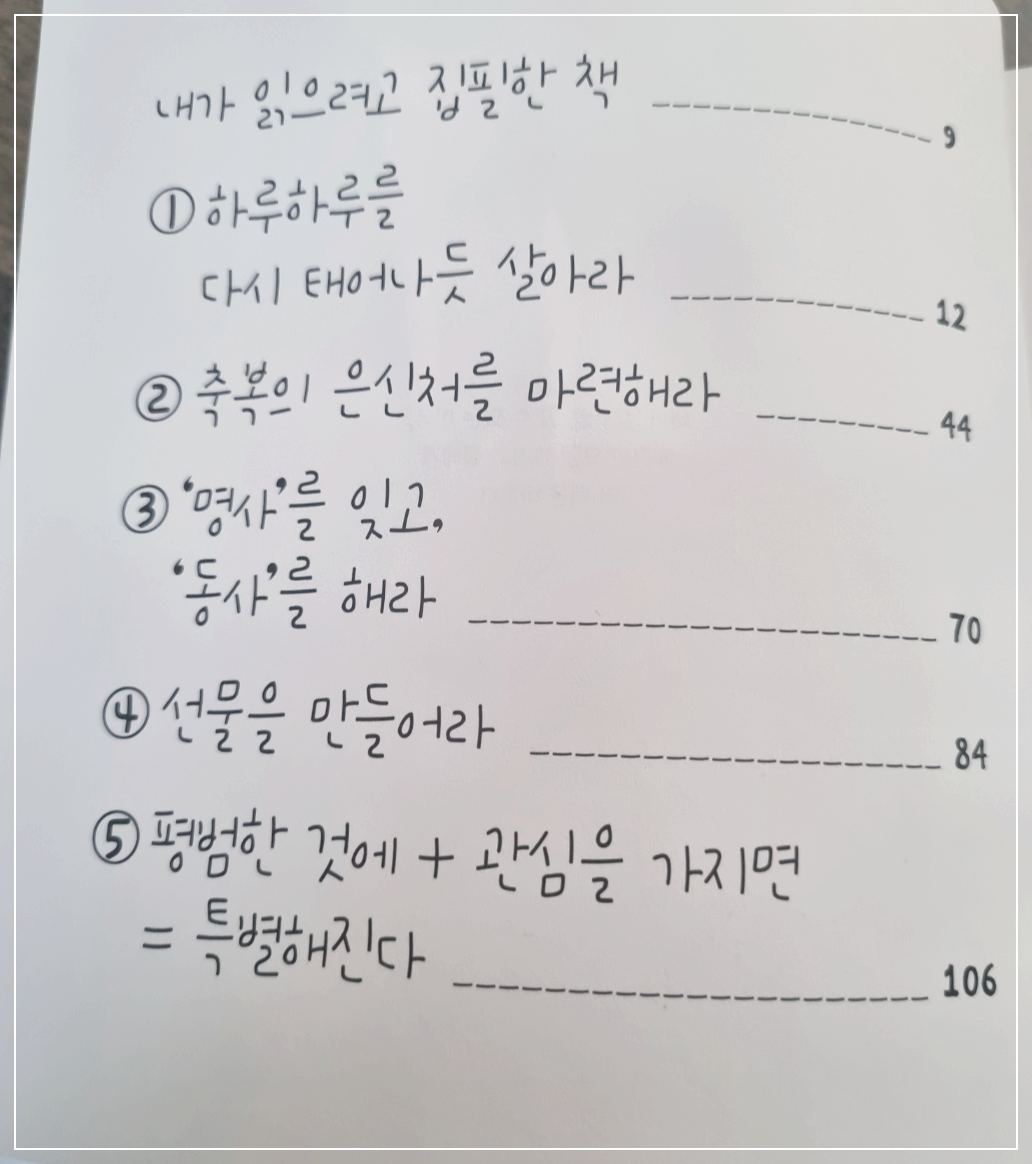 내가 읽으려고 집필한 책 ---------------- 9
① 하루하루를
다시 태어나듯 살아라 -------------- 12
② 축복의 은신처를 마련해라 ---------- 44
③ '명사'를 잊고,
'동사'를 해라 ------------------------ 70
④ 선물을 만들어라 --------------------- 84
⑤ 평범한 것에 + 관심을 가지면
= 특별해진다 ------------------------ 106